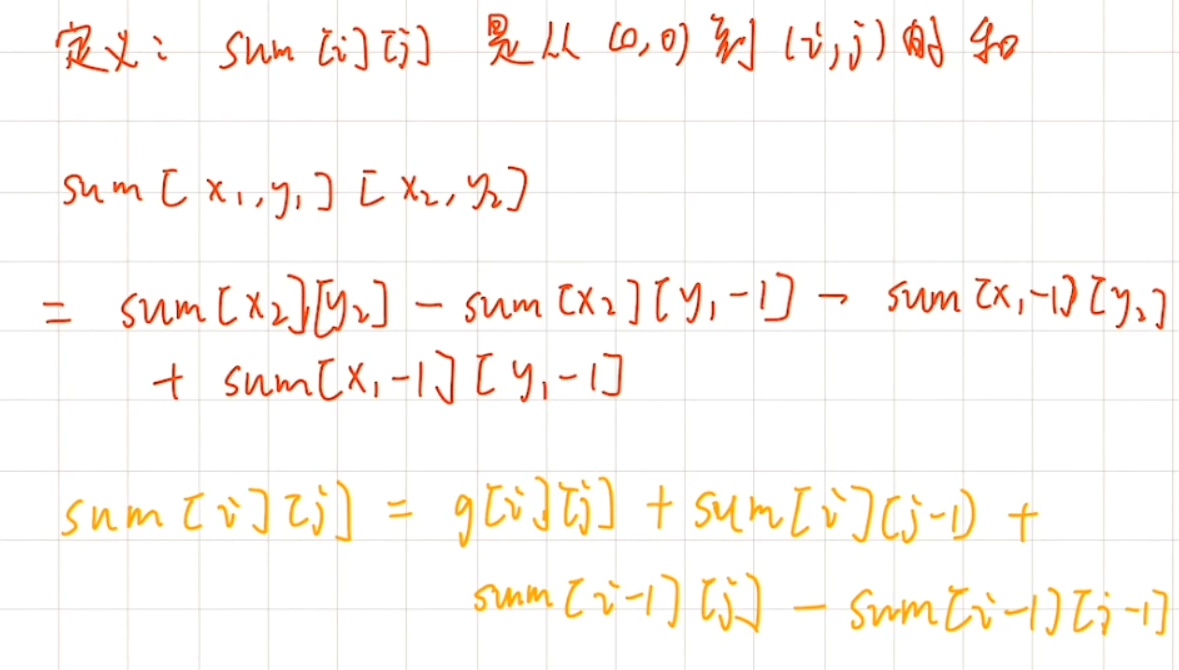 定义: sum [i][j] 是从 (0,0) 到 (i,j) 的和
sum [x₁,y₁] [x₂,y₂]
= sum[x₂][y₂] - sum[x₂][y₁-1] - sum[x₁-1][y₂]
+ sum[x₁-1][y₁-1]
sum[i][j] = g[i][j] + sum[i][j-1] +
sum[i-1][j] - sum[i-1][j-1]